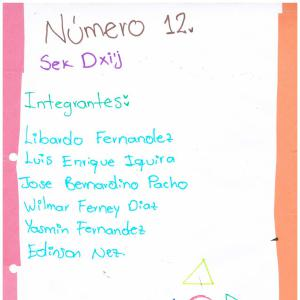 Número 12.
Sek Dxi'j
Integrantes:
Libardo Fernandez
Luis Enrique Iquira
Jose Bernardino Pacho
Wilmar Ferney Diaz
Yasmin Fernandez
Edinson Nez.